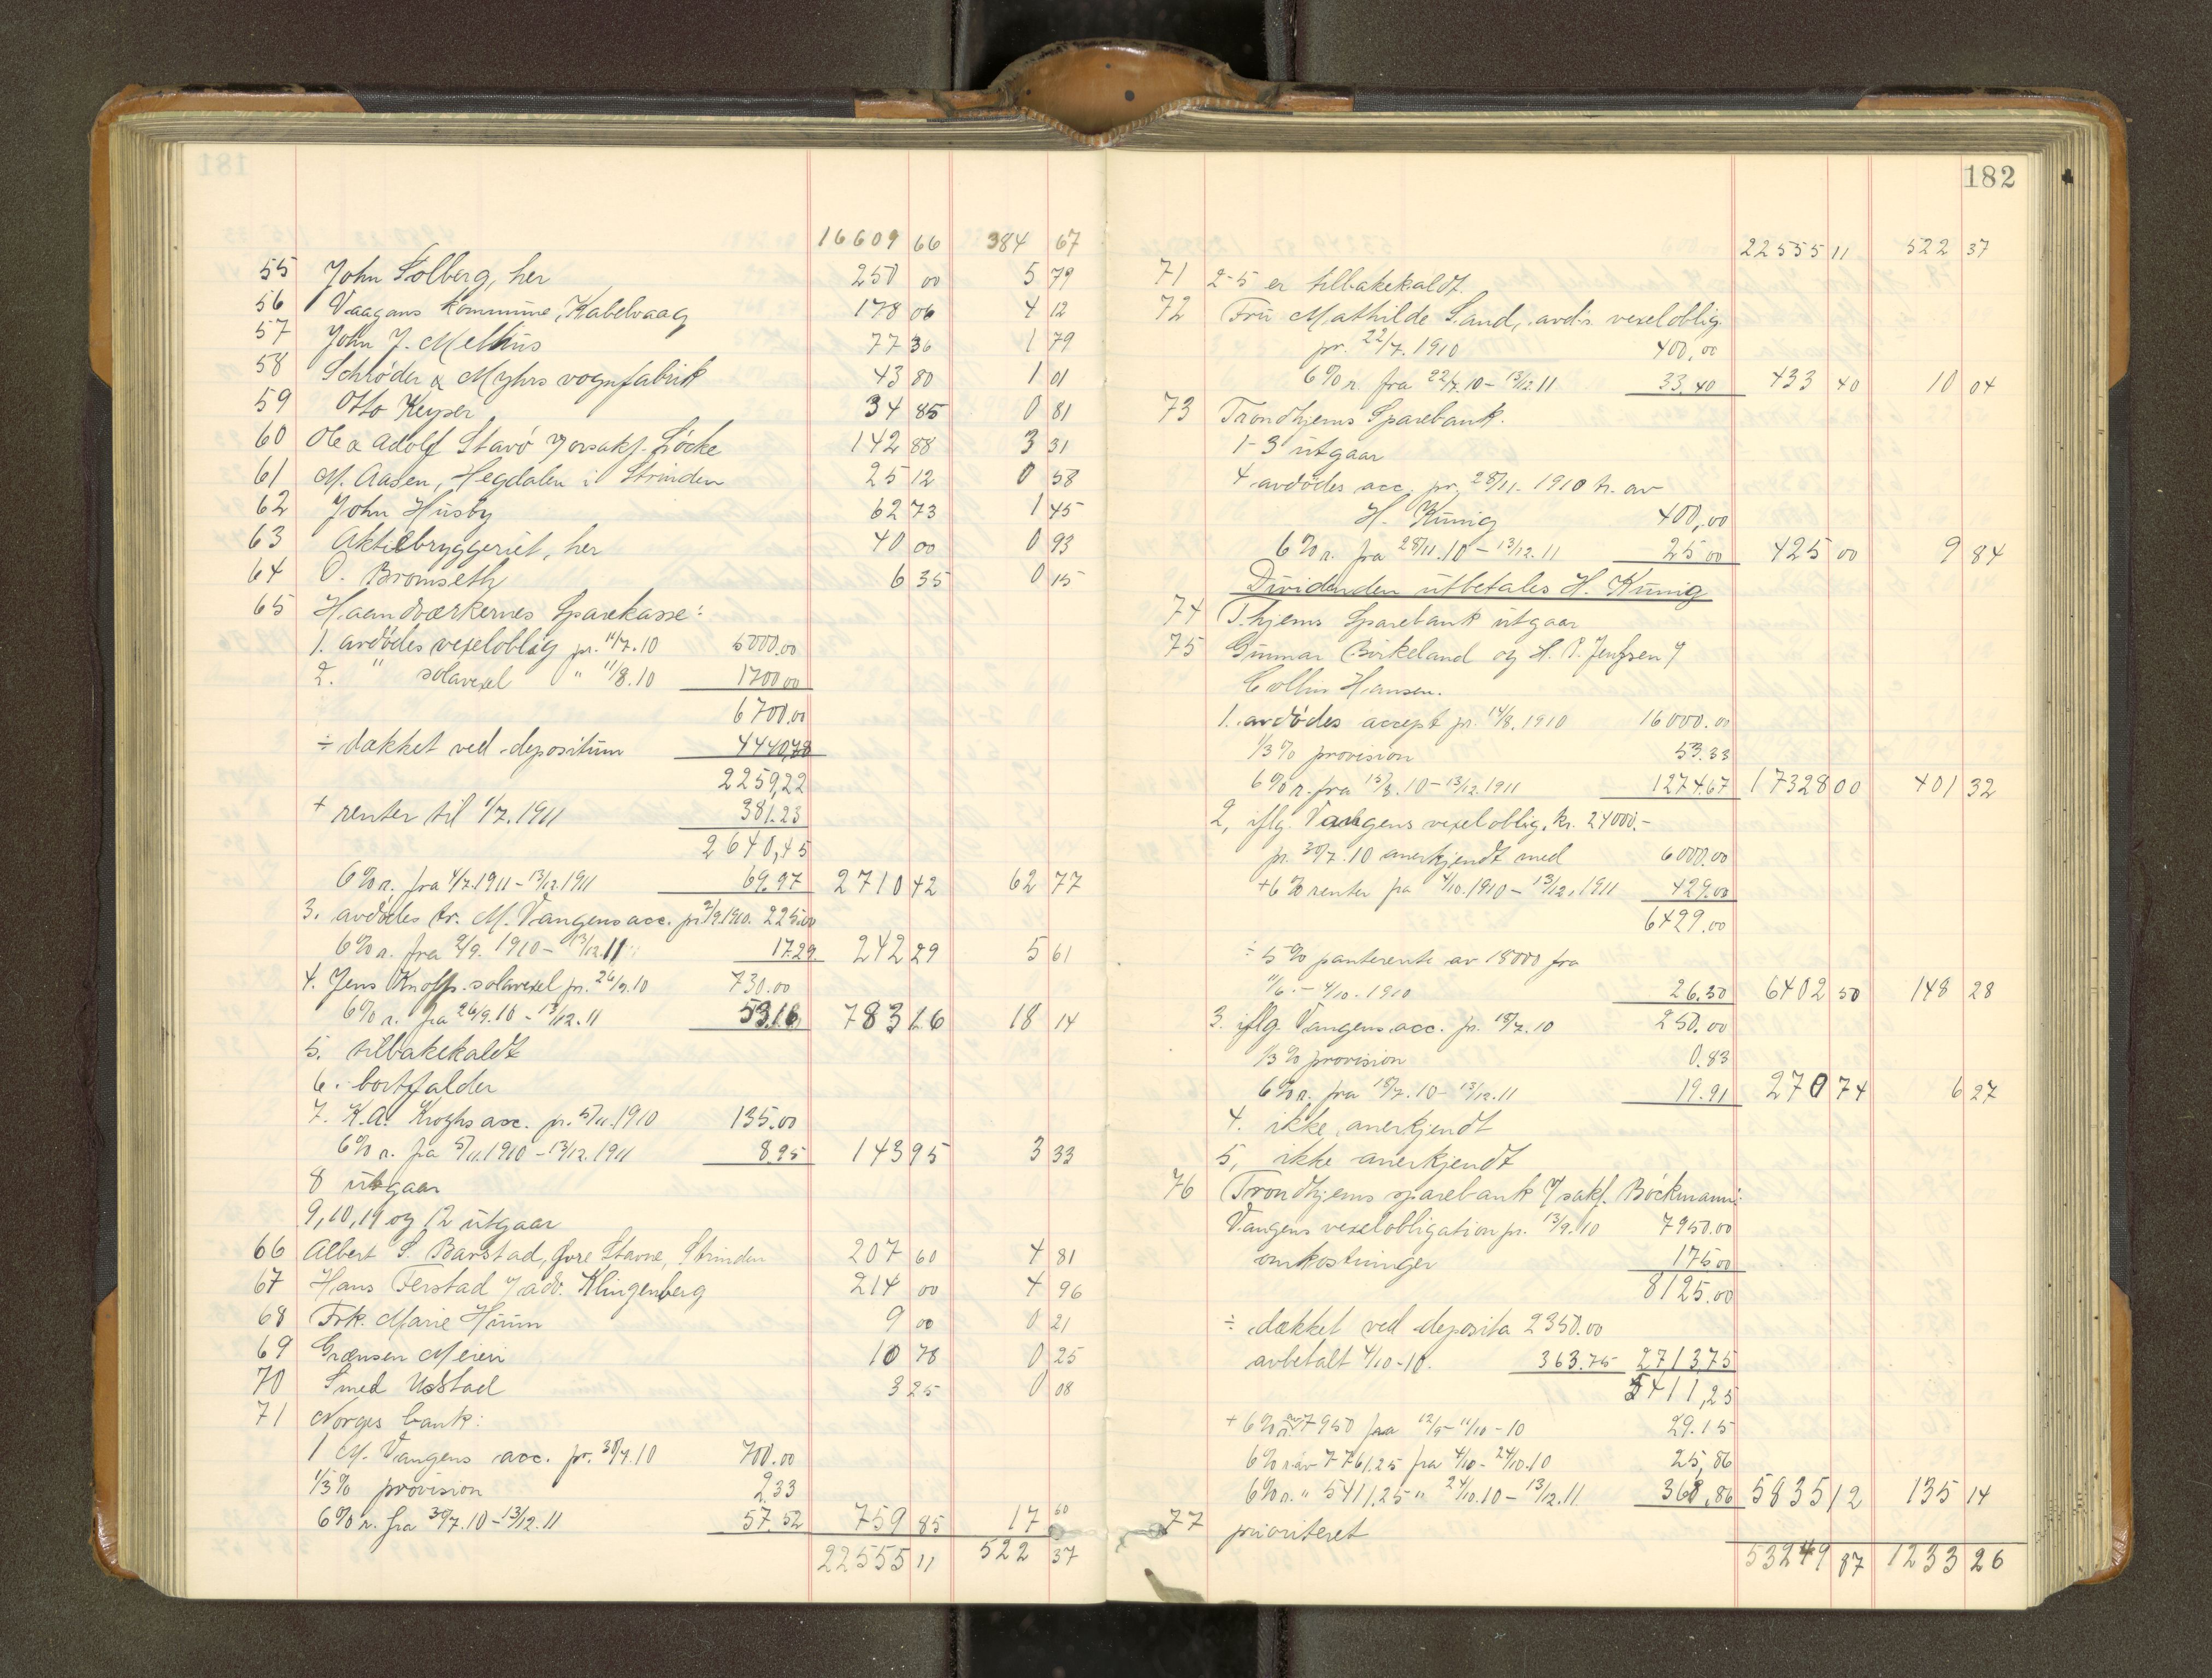 181
16609 66 384 67
55 John Solberg, her 250 00 5 79
56 Vaagans kommune, Kabelvaag 178 06 4 12
57 John J. Melhus 77 36 1 79
58 Schrøder & Myhrs vognfabrik 43 80 1 01
59 Otto Keyser 34 85 0 81
60 Ole & Adolf Stavö 142 88 3 31
61 M. Aasen, Hegdalen i Strinden 25 12 0 58
62 John Husby 62 73 1 45
63 Aktiebryggeriet, her 40 00 0 93
64 O. Bromseth 6 35 0 15
65 Haandværkernes Sparekasse:
1. avdödes vexeloblig pr. 11/7.10 5000.00
2. " solavexel " 11/8.10 1700 00
6700.00
÷ dækket ved depositum 4440,78
2259,22
+ renter til 1/7.1911 381.23
2640,45
6% r. fra 4/7.1911 - 13/12.1911 69.97 2710 42 62 77
3. avdödes tr. M. Vangens acc. pr. 2/9.1910. 225.00
6% r. fra 2/9. 1910 - 13/12.11 17.29 242 29 5 61
4. Jens Knoffs solavexel pr. 26/9.10 730.00
6% r. fra 26/9.10 - 13/12.11 53.16 783 16 18 14
5. tilbakekaldt
6. bortfalder
7. K.A. Kroghs acc. pr. 5/11.1910 135.00
6% r. fra 5/11.1910 - 13/12.1911 8.95 143 95 3 33
8 utgaar
9, 10, 11 og 12 utgaar
66 Albert S. Barstad, Øvre Stavne, Strinden 207 60 4 81
67 Hans Ferstad v/ adv. Klingenberg 214 00 4 96
68 Frk. Marie Huun 9 00 0 21
69 Grænsen Meieri 10 78 0 25
70 Smed Udstad 3 25 0 08
71 Norges bank:
1 M. Vangens acc. pr. 30/7.10 700.00
1/3% provision 2.33
6% r. fra 30/7.10 - 13/12.11 57.52 759 85 17 60
22555 11 522 37
182
22555 11 522 37
71 2-5 er tilbakekaldt.
72 Fru Mathilde Sand, avd's vexeloblig.
pr. 22/7. 1910 400,00
6% r. fra 22/7.10 - 13/12.11 33.40 433 40 10 04
73 Trondhjems Sparebank.
1-3 utgaar
4 avdödes acc. pr. 28/11. 1910 tr. av
H. Künig 400,00
6% r. fra 28/11.10 - 13/12.11 25 00 425 00 9 84
Dividenden utbetales H. Künig
74 T.hjems Sparebank utgaar
75 Gunnar Birkeland og H. P. Jenssen v/
Collin Hansen.
1. avdödes accept pr. 14/8. 1910 16000.00
1/3% provision 53.33
6% r. fra 15/8.10 - 13/12.1911 1274.67 17328 00 401 32
2, iflg. Vangens vexeloblig. kr. 24000.-
pr. 30/7.10 anerkjendt med 6000.00
+ 6% renter fra 4/10.1910 - 13/12.1911 429.00
6429.00
÷ 5% panterente av 18000 fra
11/6. - 4/10. 1910 26.50 6402 50 148 28
3. iflg. Vangens acc. pr. 18/7.10 250.00
1/3% provision 0.83
6% r. fra 18/7.10 - 13/12.11 19.91 270 74 6 27
4. ikke anerkjendt
5, ikke anerkjendt
76 Trondhjems sparebank v/ sakf. Böckmann:
Vangens vexelobligation pr. 13/9.10 7950.00
omkostninger 175 00
8125.00
÷ dækket ved deposita 2350.00
avbetalt 4/10-10. 363.75 2713.75
5411,25
+ 6% r. av 7950 fra 12/9 - 11/10 - 10 29.15
6% r. av 7761.25 fra 4/10 - 24/10.10 25,86
6% r. " 5411.25 " 24/10.10 - 13/12.11 368,86 5835 12 135 14
77 prioriteret
53249 87 1233 26